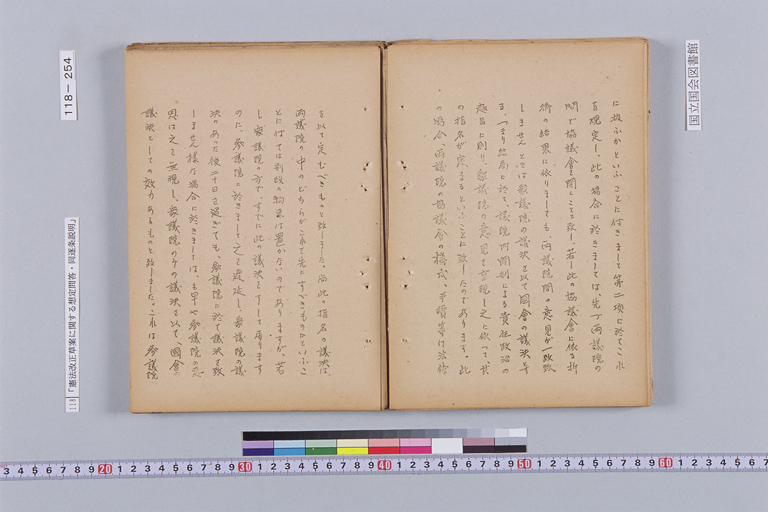 に扱ふかといふことに付きまして第二項に於てこれ
を規定し、此の場合に於きましては、先づ両議院の
間で協議會を開くことと致し、若し此の協議會に依る折
衝の結果に依りましても、両議院間の意見が一致致
しませんときは衆議院の議決を以て國會の議決と
する、つまり結局に於て、議院内閣制による責任政治の
趣旨に則り、衆議院の意見を重視し之に依つて、
の指名が定まるといふことに致したのであります。此
の場合、両議院の協議會の構成、手續等は法律
を以て定むべきものと致しました。尚此の指名の議決は、
両議院の中のどちらがこれを先にすべきものかといふこ
とに付ては別段の制約は置かないのでありますが、若
し衆議院の方で、すでに此の議決を了して居ります
のに、参議院に於きまして之を遷延し、衆議院の議
決のあつた後二十日を過ぎても、参議院に於て議決を致
しません様な場合に於きましては、も早や参議院の意
思は之を無視し、衆議院のその議決を以て、國會の
議決としての效力あるものと致しました。これは参議院
国立国会図書館
118-254
118 「憲法改正草案に関する想定問答・同逐条説明」
3 4 5 6 7 8 9 20 1 2 3 4 5 6 7 8 9 30 1 2 3 4 5 6 7 8 9 40 1 2 3 4 5 6 7 8 9 50 1 2 3 4 5 6 7 8 9 60 1 2 3 4 5 6 7